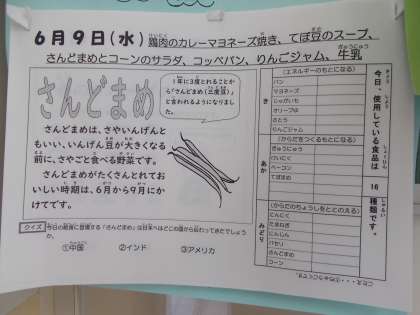 6月9日(水) 鶏肉のカレーマヨネーズ焼き、てぼ豆のスープ、
さんどまめとコーンのサラダ、コッペパン、りんごジャム、牛乳
さんどまめ
1年に3度とれることから「さんどまめ（三度豆）」と言われるようになりました。
さんどまめは、さやいんげんと
もいい、いんげん豆が大きくなる
前に、さやごと食べる野菜です。
さんどまめがたくさんとれてお
いしい時期は、6月から9月にか
けてです。
クイズ 今日の給食に登場する「さんどまめ」は日本へはどこの国から伝わってきたでしょうか。
①中国 ②インド ③アメリカ
今日、使用している食品は 16 種類です。
き
（エネルギーのもとになる）
パン
マヨネーズ
じゃがいも
オリーブ油
さとう
りんごジャム
あか
（からだをつくるもとになる）
ぎゅうにゅう
けいにく
ベーコン
てぼまめ
みどり
（からだのちょうしをととのえる）
にんにく
たまねぎ
にんじん
パセリ
さんどまめ
コーン